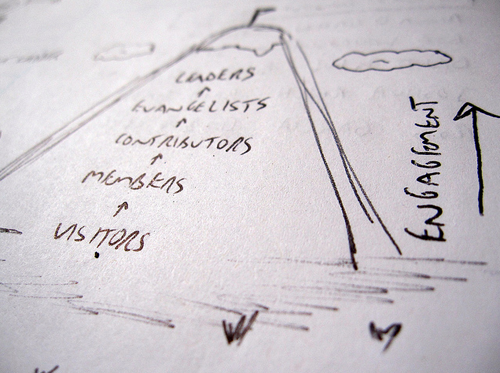 LEADERS
EVANGELISTS
CONTRIBUTORS
MEMBERS
VISITORS
ENGAGEMENT